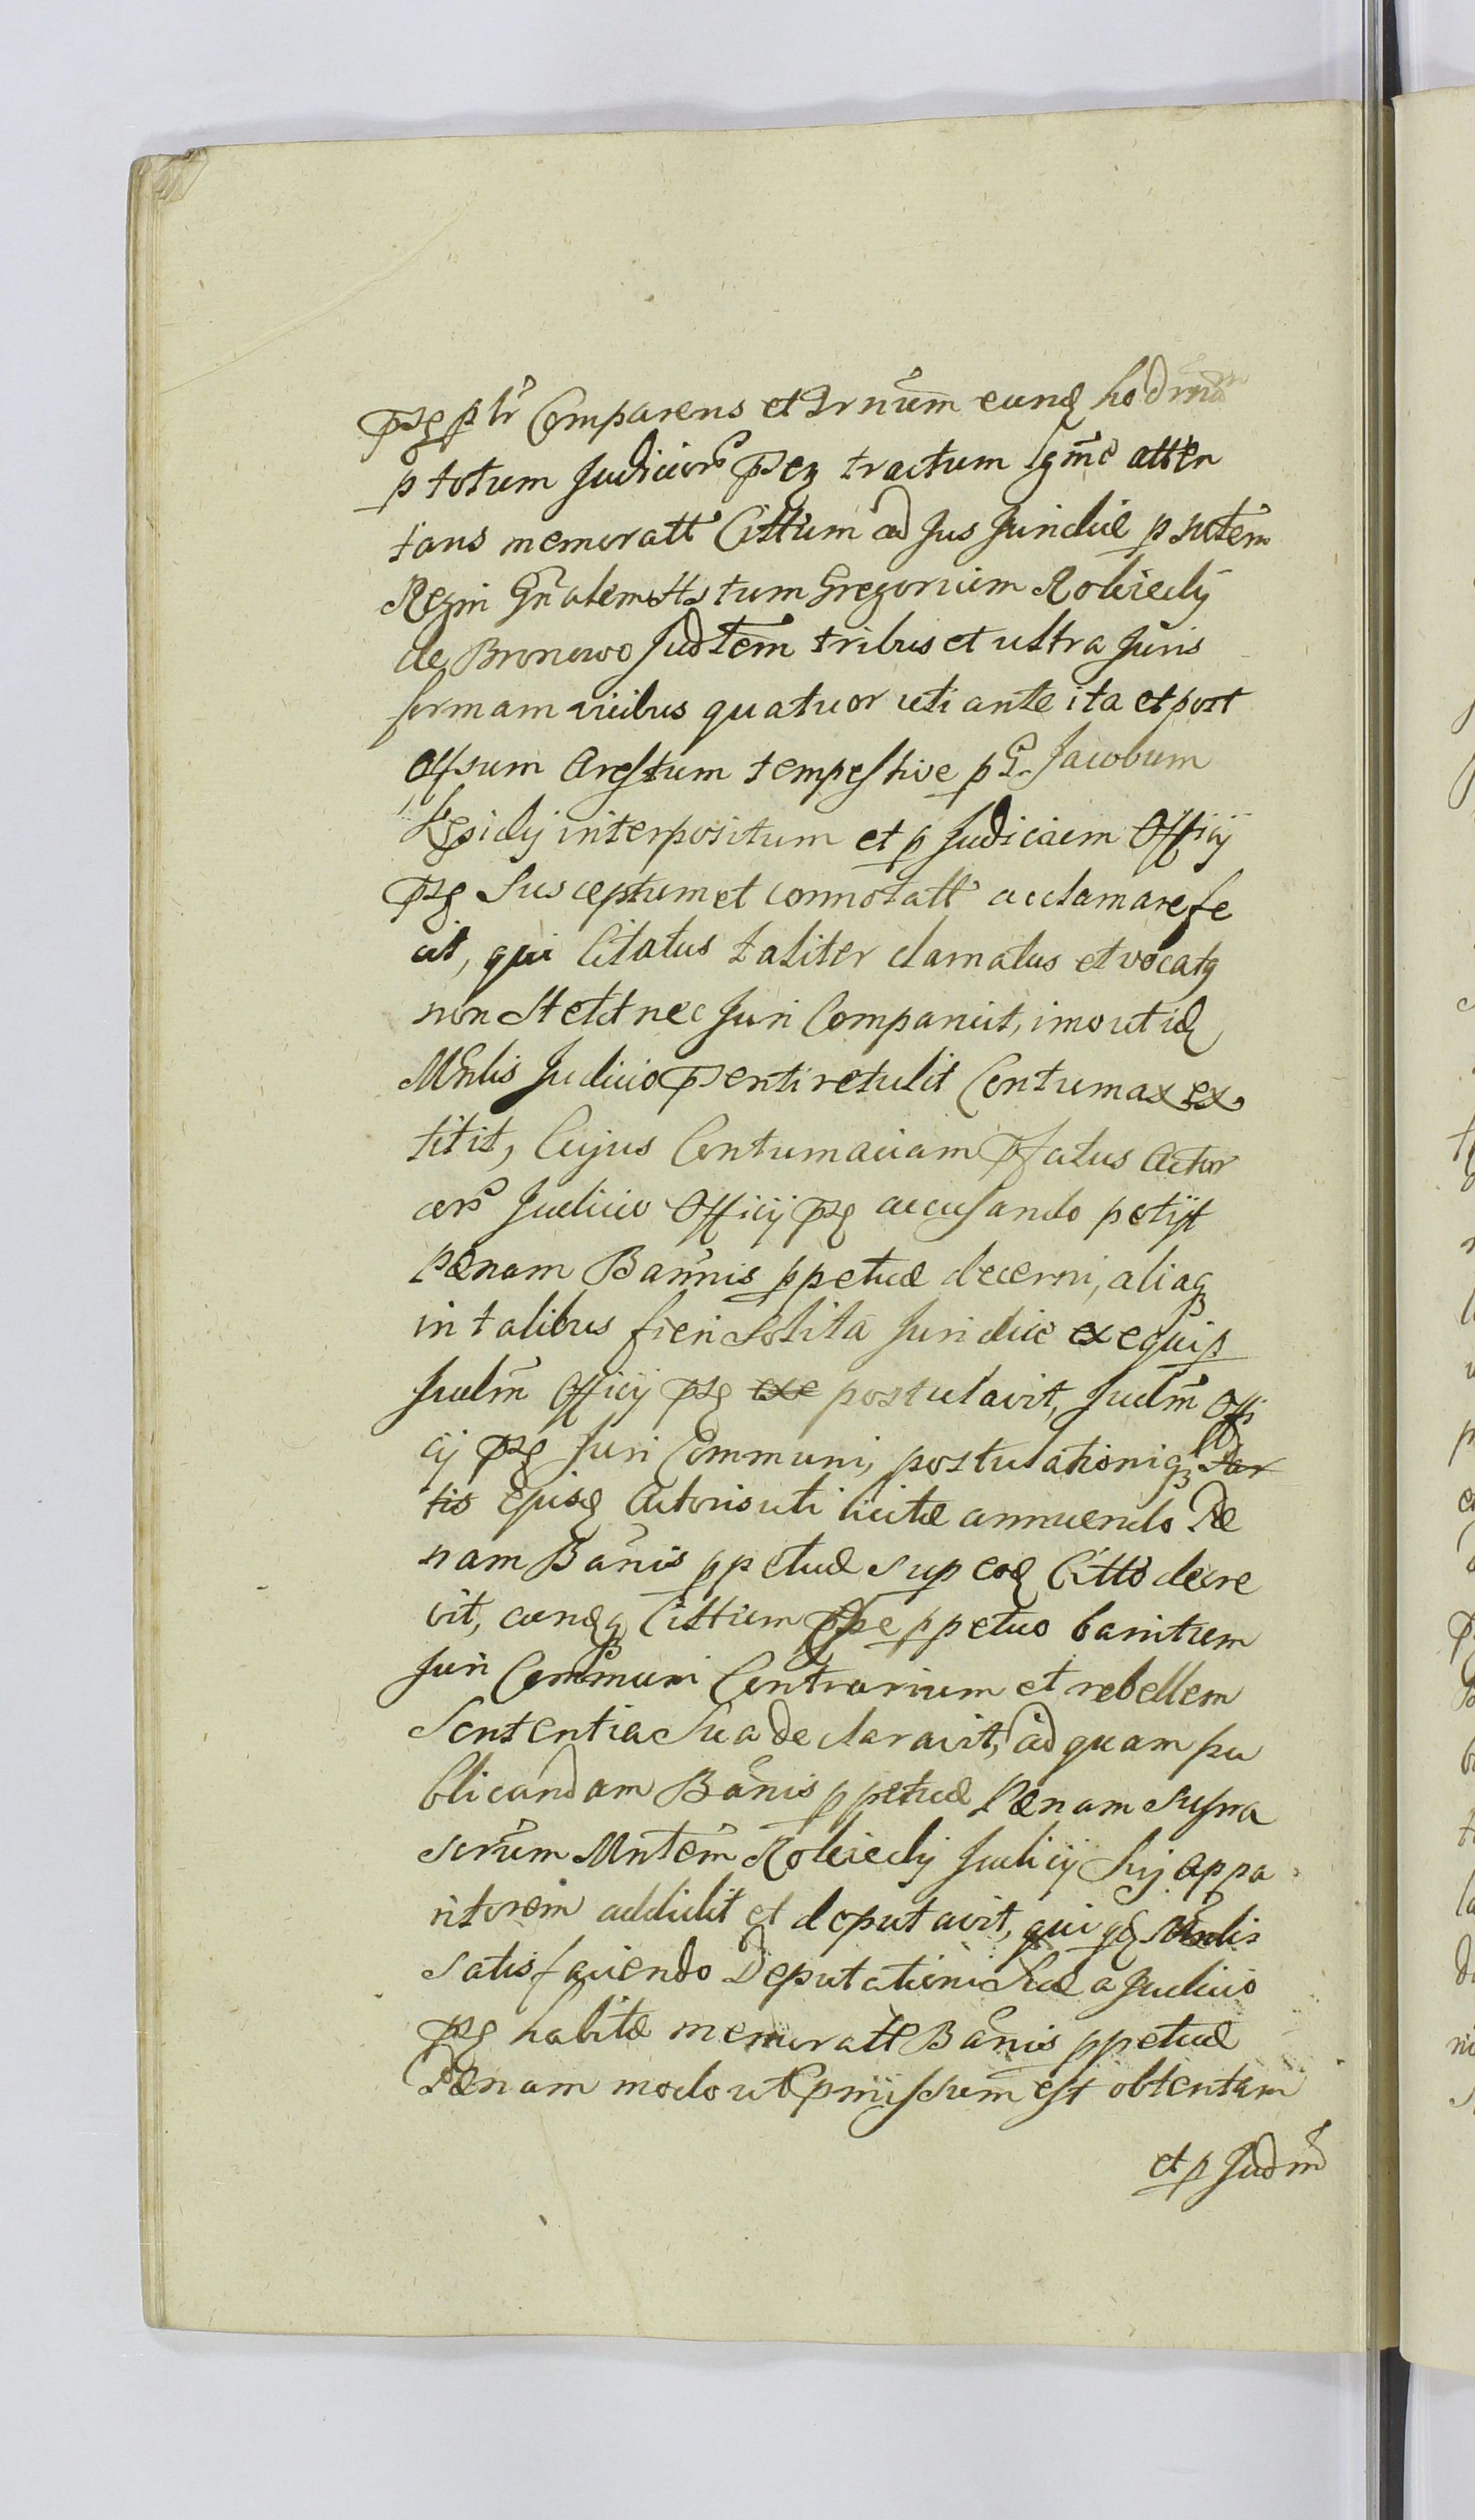 psq p tr Comparens et Trnum eunq hodrnã
p totum Judicior psq tractum lgmẽ atten
tans memoratt Cittum ad Jus Juridicæ p Mtem
Regni Gnalem Hstum Gregorium Rolviedij
de Bronowo Judtem tribus et ultra Juris
formam vicibus quatuor uti ante ita et post
Offsum Arestum tempestive p G. Jacobum
interpositum et p Judicium Officij
psq Susceptum et connotatt acclamare fe
cit, qui Citatus taliter clamatus et vocatq
non Stetit nec Juri Comparuit, imo ut idq
Mnlis Judicio psenti retulit Contumax ex
titit, Cujus Contumaciam pfatus Actor
cors Judicio Officij psq accusando petijt
Pænam Bannis ppetuæ decerni, aliaq
in talibus fieri Solita Juridice exequi p
Judm Officij psq exe postulavit, Judm Offi
cij psq Juri Communi, postulationiq par
tis ejusq Actoris uti licitæ annuendo Pæ
nam Banis ppetuæ sup eoq Citto decre
vit, eunqq Cittum ppetuo banitum
Juri Communi Contrarium et rebellem
Sententia Sua declaravit, ad quam pu
blicandam Banis ppetuæ Pænam Supra
scrum Mntem Rolviedij Judicij huj appa
ritorem addidit et deputavit, qui qq Mnlis
satisfaciendo Deputationi Suæ a Judicio
psq habitæ memoratt Banis ppetuæ
Pænam modo ut pmissum est obtentam
et p Judm